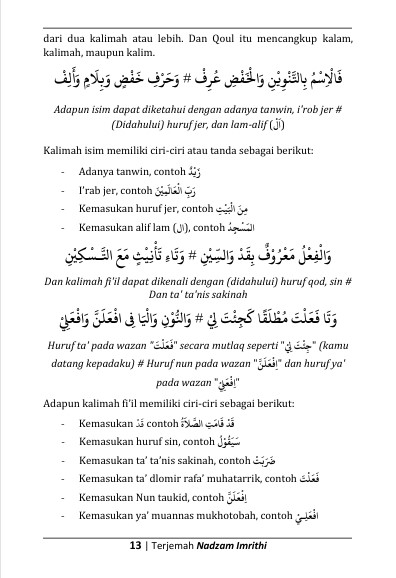 dari dua kalimah atau lebih. Dan Qoul itu mencangkup kalam,
kalimah, maupun kalim.
فَالْاِسْمُ بِالتَّنْوِيْنِ وَالْخَفْضِ عُرِفْ # وَحَرْفِ خَفْضٍ وَبِلَامٍ وَأَلِفْ
Adapun isim dapat diketahui dengan adanya tanwin, i'rob jer #
(Didahului) huruf jer, dan lam-alif (اَلْ)
Kalimah isim memiliki ciri-ciri atau tanda sebagai berikut:
- Adanya tanwin, contoh زَيْدٌ
- I'rab jer, contoh رَبِّ الْعَالَمِيْنَ
- Kemasukan huruf jer, contoh مِنَ الْبَيْتِ
- Kemasukan alif lam (ال), contoh المَسْجِدُ
وَالْفِعْلُ مَعْرُوْفٌ بِقَدْ وَالسِّيْنِ # وَتَاءِ تَأْنِيْثٍ مَعَ التَّسْكِيْنِ
Dan kalimah fi'il dapat dikenali dengan (didahului) huruf qod, sin #
Dan ta' ta'nis sakinah
وَتَا فَعَلْتَ مُطْلَقًا كَجِئْتَ لِيْ # وَالنُّوْنِ وَالْيَا فِى افْعَلَنَّ وَافْعَلِيْ
Huruf ta' pada wazan "فَعَلْتَ" secara mutlaq seperti "جِئْتَ لِيْ" (kamu
datang kepadaku) # Huruf nun pada wazan "اِفْعَلَنَّ" dan huruf ya'
pada wazan "اِفْعَلِيْ"
Adapun kalimah fi'il memiliki ciri-ciri sebagai berikut:
- Kemasukan قَدْ contoh قَدْ قَامَتِ الصَّلَاةُ
- Kemasukan huruf sin, contoh سَيَقُوْلُ
- Kemasukan ta' ta'nis sakinah, contoh ضَرَبَتْ
- Kemasukan ta' dlomir rafa' muhatarrik, contoh فَعَلْتَ
- Kemasukan Nun taukid, contoh اِفْعَلَنَّ
- Kemasukan ya' muannas mukhotobah, contoh افْعَلِيْ
13 | Terjemah Nadzam Imrithi